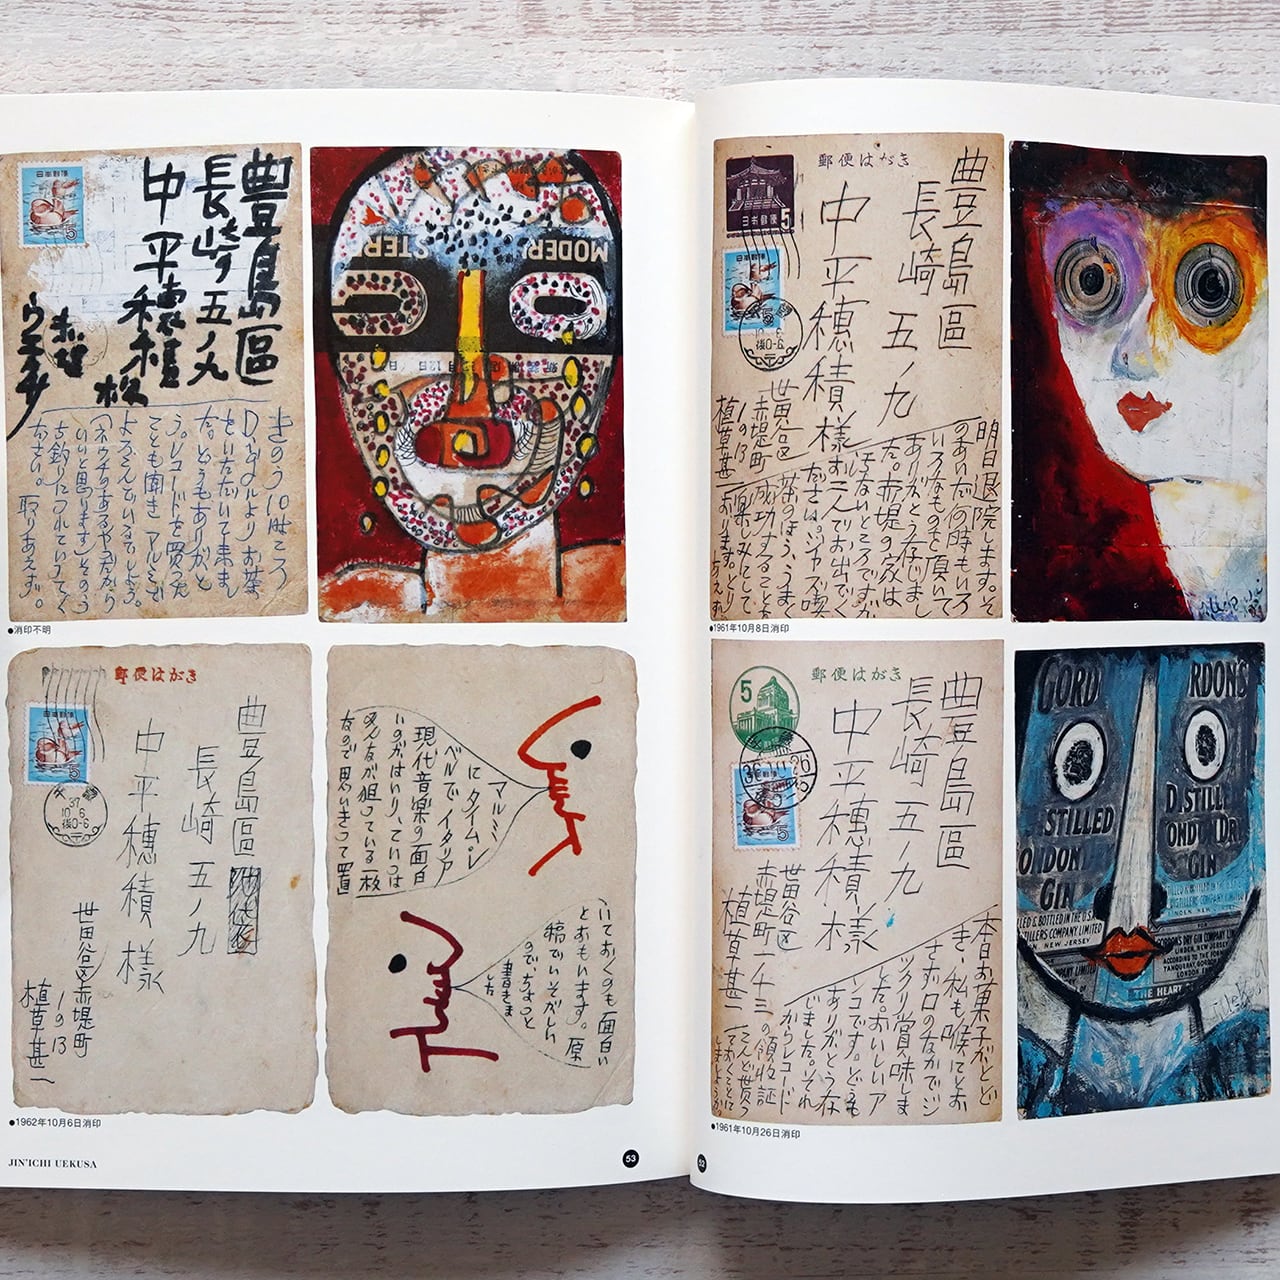 郵便はがき
日本郵便
5
豊島區
長崎 五ノ九
中平穂積様
世田谷区
赤堤町
1の13
植草甚一
明日退院します。そ
のあいだ何時もいろ
いろなものを頂いて
ありがとう存じまし
た。赤堤の家は
ないところですが
お出でく
ださい。ジャズ喫
茶のほう、うまく
成功することを
楽しみにして
おります。とり
あえず。
●1961年10月8日消印
郵便はがき
5
日本郵便
5
豊島區
長崎 五ノ九
中平穂積様
世田谷区
赤堤町一ノ十三
植草甚一
本日お菓子がとど
き、私も喉にとお
さず口のなかでジ
ックリ賞味しま
した。おいしいア
ンコです。どうも
ありがとう存
じました。それ
からレコード
の領収証
GORD
RDON'S
STILLED
DISTILL
ONDON
LONDON DR
GIN
GIN
NEW JERSEY
THE HEART
●1961年10月26日消印
52
日本郵便
5
豊島區
長崎五ノ九
中平穂積様
赤堤
ウエクサ
きのう10時ころ
D.ダルよりお茶
をいただいて来まし
た。どうもありがと
う。レコードを買った
ことも聞き アルミンで
よろこんでいるでしょう。
(ネウチのあるやつだから
いいと思います)そのう
ち釣りにつれていってく
ださい。取りあえず。
MODERN
STER
●消印不明
郵便はがき
日本郵便
5
37
10.6
後0-6
豊島區
長崎 五ノ九
中平穂積様
世田谷区赤堤町
1の13
植草甚一
マルミン
にタイム・レー
ベルでイタリア
現代音楽の面白
いのがはいり、ていつは
みんなが狙っている一枚
なので思いきって置
いておくのも面白い
とおもいます。原
稿でいそがしい
ので、ちょっと
書きま
した
●1962年10月6日消印
JIN'ICHI UEKUSA
53